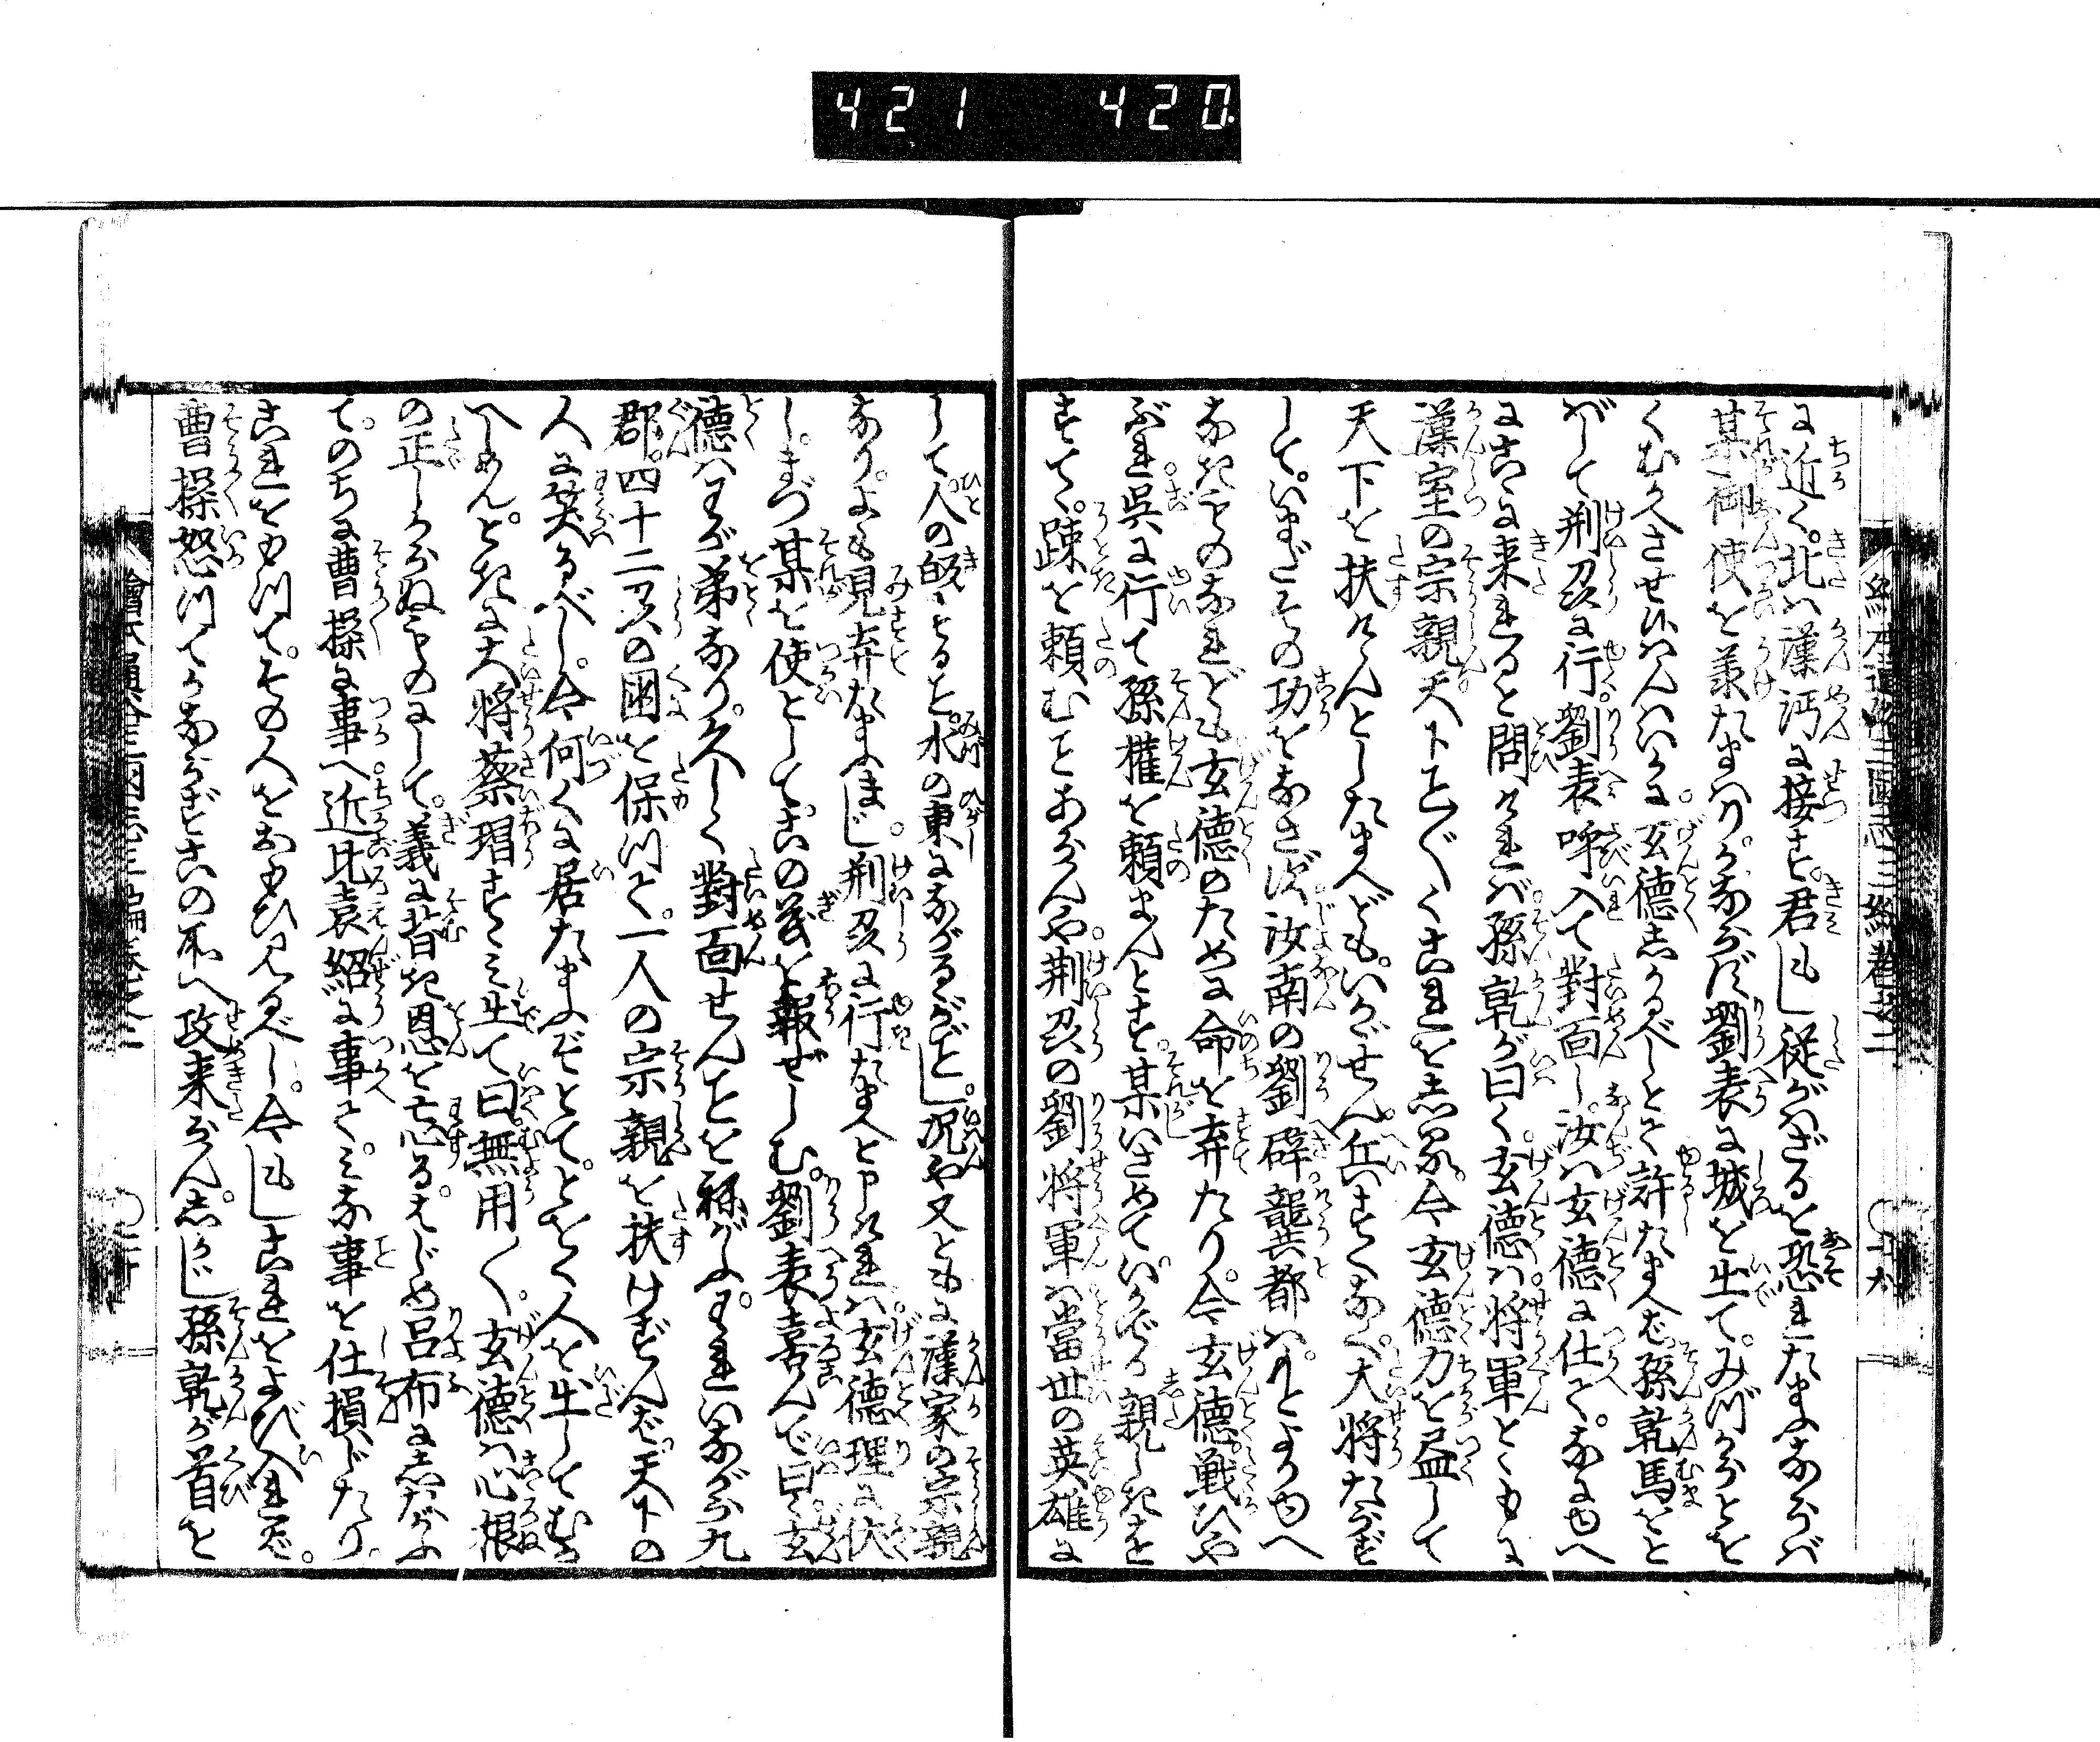 421 420
に近く。北は漢沔に接す。君もし従がハざるを恐れたまふならバ
某御使を兼たまハり。かならず劉表に城を出て。みづからとを
くむかへさせ候ハんハいかに。玄徳しかるべしとて許たまへバ孫乾馬をと
バして荊州に行。劉表呼入て對面し。汝ハ玄徳に仕て。なにゆへ
にこゝに来れると問けれバ。孫乾が曰く。玄徳ハ。将軍とともに
漢室の宗親天下ことごとくこれをしる。今玄徳力を益して
天下を扶けんとしたまへども。いかゞせん。兵すくなく。大将たらず
して。いまだその功をなさず。汝南の劉辟。龔都ハ。もとよりゆへ
なきものなれども玄徳のために命を弃たり。今玄徳。戦ひや
ぶれ。呉に行て孫権を頼まんとす。某いさめていかでか親しきを
すてゝ。踈を頼むことあらんや。荊州の劉将軍ハ當世の英雄に
して。人の皈すること。水の東にながるゝがごとし。况や又ともに漢家の宗親
なり。よも見弃たまはじ。荊州に行たまへと申けれバ。玄徳理に伏
し。まづ某を使として。この義を報ぜしむ。劉表喜んで曰く。玄
徳ハわが弟なり。久しく對面せんことを祢がふ。われいながら九
郡。四十二州の國を保つて。一人の宗親を扶けずんバ。天下の
人に笑るべし。今何くに居たまふぞとて。とをく人を出してむか
へしめんときに大将蔡瑁すゝミ出て曰。無用〱。玄徳ハ心根
の正しからぬものにして。義に背き恩を忘る。はじめ呂布にしたがふ
て。のちに曹操に事へ。近比袁紹に事て。ミな事を仕損じたり。
これをもつて。その人をおもひみるべし。今もしこれをよび入れバ。
曹操怒つてかならずこの所へ攻来らん。しかじ孫乾が首を